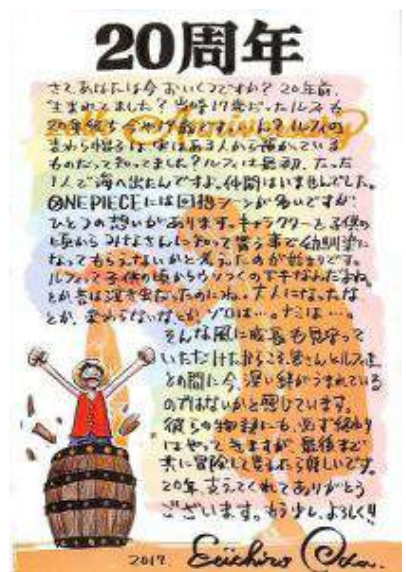 20周年
さて、あなたは今おいくつですか? 20年前、
生まれてました? 当時17歳だったルフィも
20年経ち今やげ歳です。いん? ルフィの
麦わら帽子は実はある人から預かっている
ものだって知ってました? ルフィは最初、たった
1人で海へ出たんですよ。仲間はいませんでした。
ONE PIECEには回想シーンが多いですが、
ひとつの想いがあります。キャラクターを子供の
頃からみなさんに知って貰う事で幼馴染に
なってもらえないかと考えたのが始まりです。
ルフィって子供の頃からウソつくのヘタなんだよね。
とか昔は泣き虫だったのにね。大人になったな
とか、変わらないなとか、ゾロは…。ナミは…。
そんな風に成長も見守って
いただけたからこそ、皆さんとルフィ達
との間に今、深い絆がうまれている
のではないかと感じています。
彼らの物語にも、必ず終わり
はやって来ますが、最後まで
共に冒険して貰えたら嬉しいです。
20年、支えてくれてありがとう
ございます。もう少し、よろしく!!
2017. Eiichiro Oda.